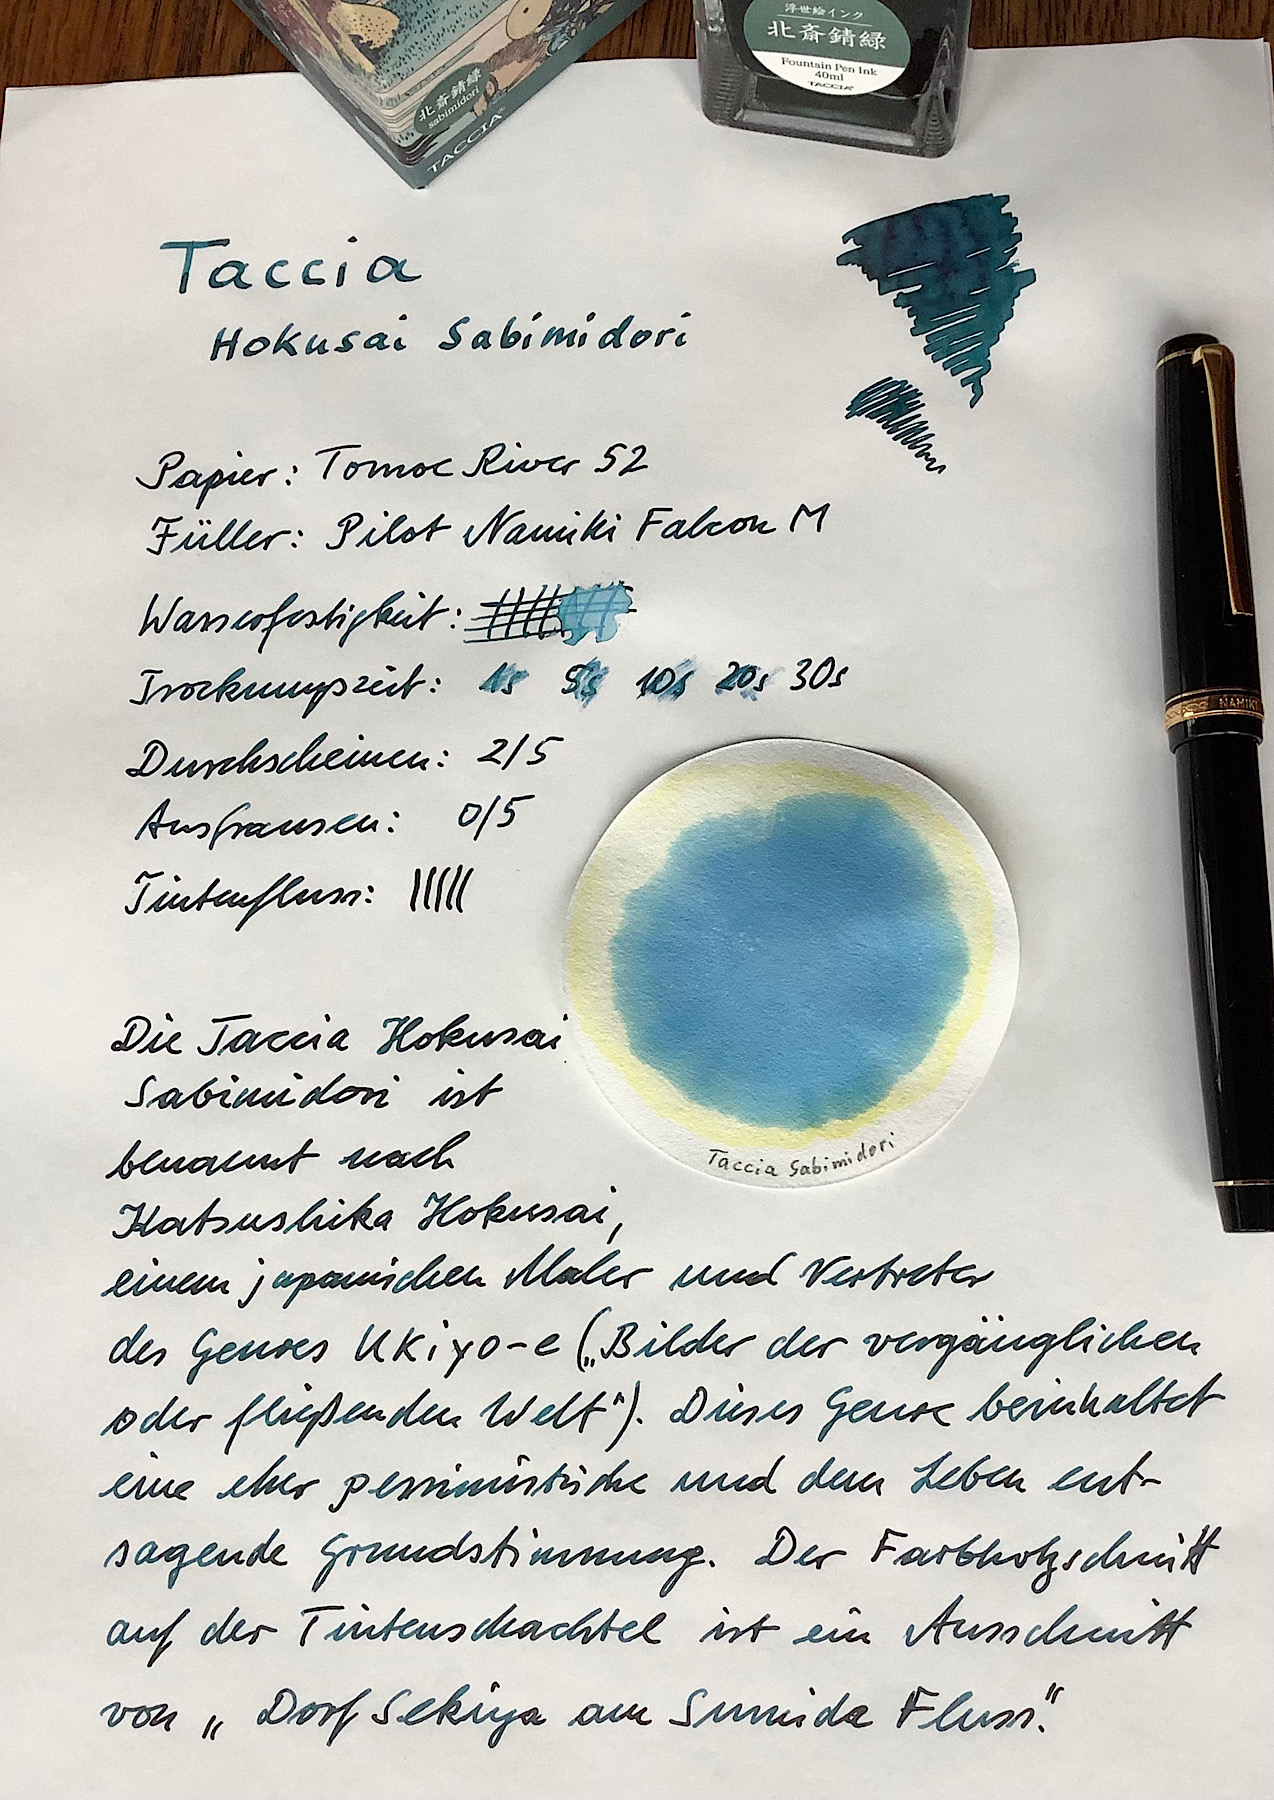 北斎錆緑
sabimidori
TACCIA
浮世絵インク
北斎錆緑
Fountain Pen Ink
40ml
TACCIA
Taccia
Hokusai Sabimidori
Papier: Tomoe River 52
Füller: Pilot Namiki Falcon M
Wasserfestigkeit:
Trocknungszeit: 1s 5s 10s 20s 30s
Durchscheinen: 2/5
Ausfransen: 0/5
Tintenfluss:
NAMIKI
Taccia Sabimidori
Die Taccia Hokusai
Sabimidori ist
benannt nach
Katsushika Hokusai,
einem japanischen Maler und Vertreter
des Genres Ukiyo-e („Bilder der vergänglichen
oder fließenden Welt“). Dieses Genre beinhaltet
eine eher pessimistische und dem Leben ent-
sagende Grundstimmung. Der Farbholzschnitt
auf der Tintenschachtel ist ein Ausschnitt
von „Dorf Sekiya am Sumida Fluss.“